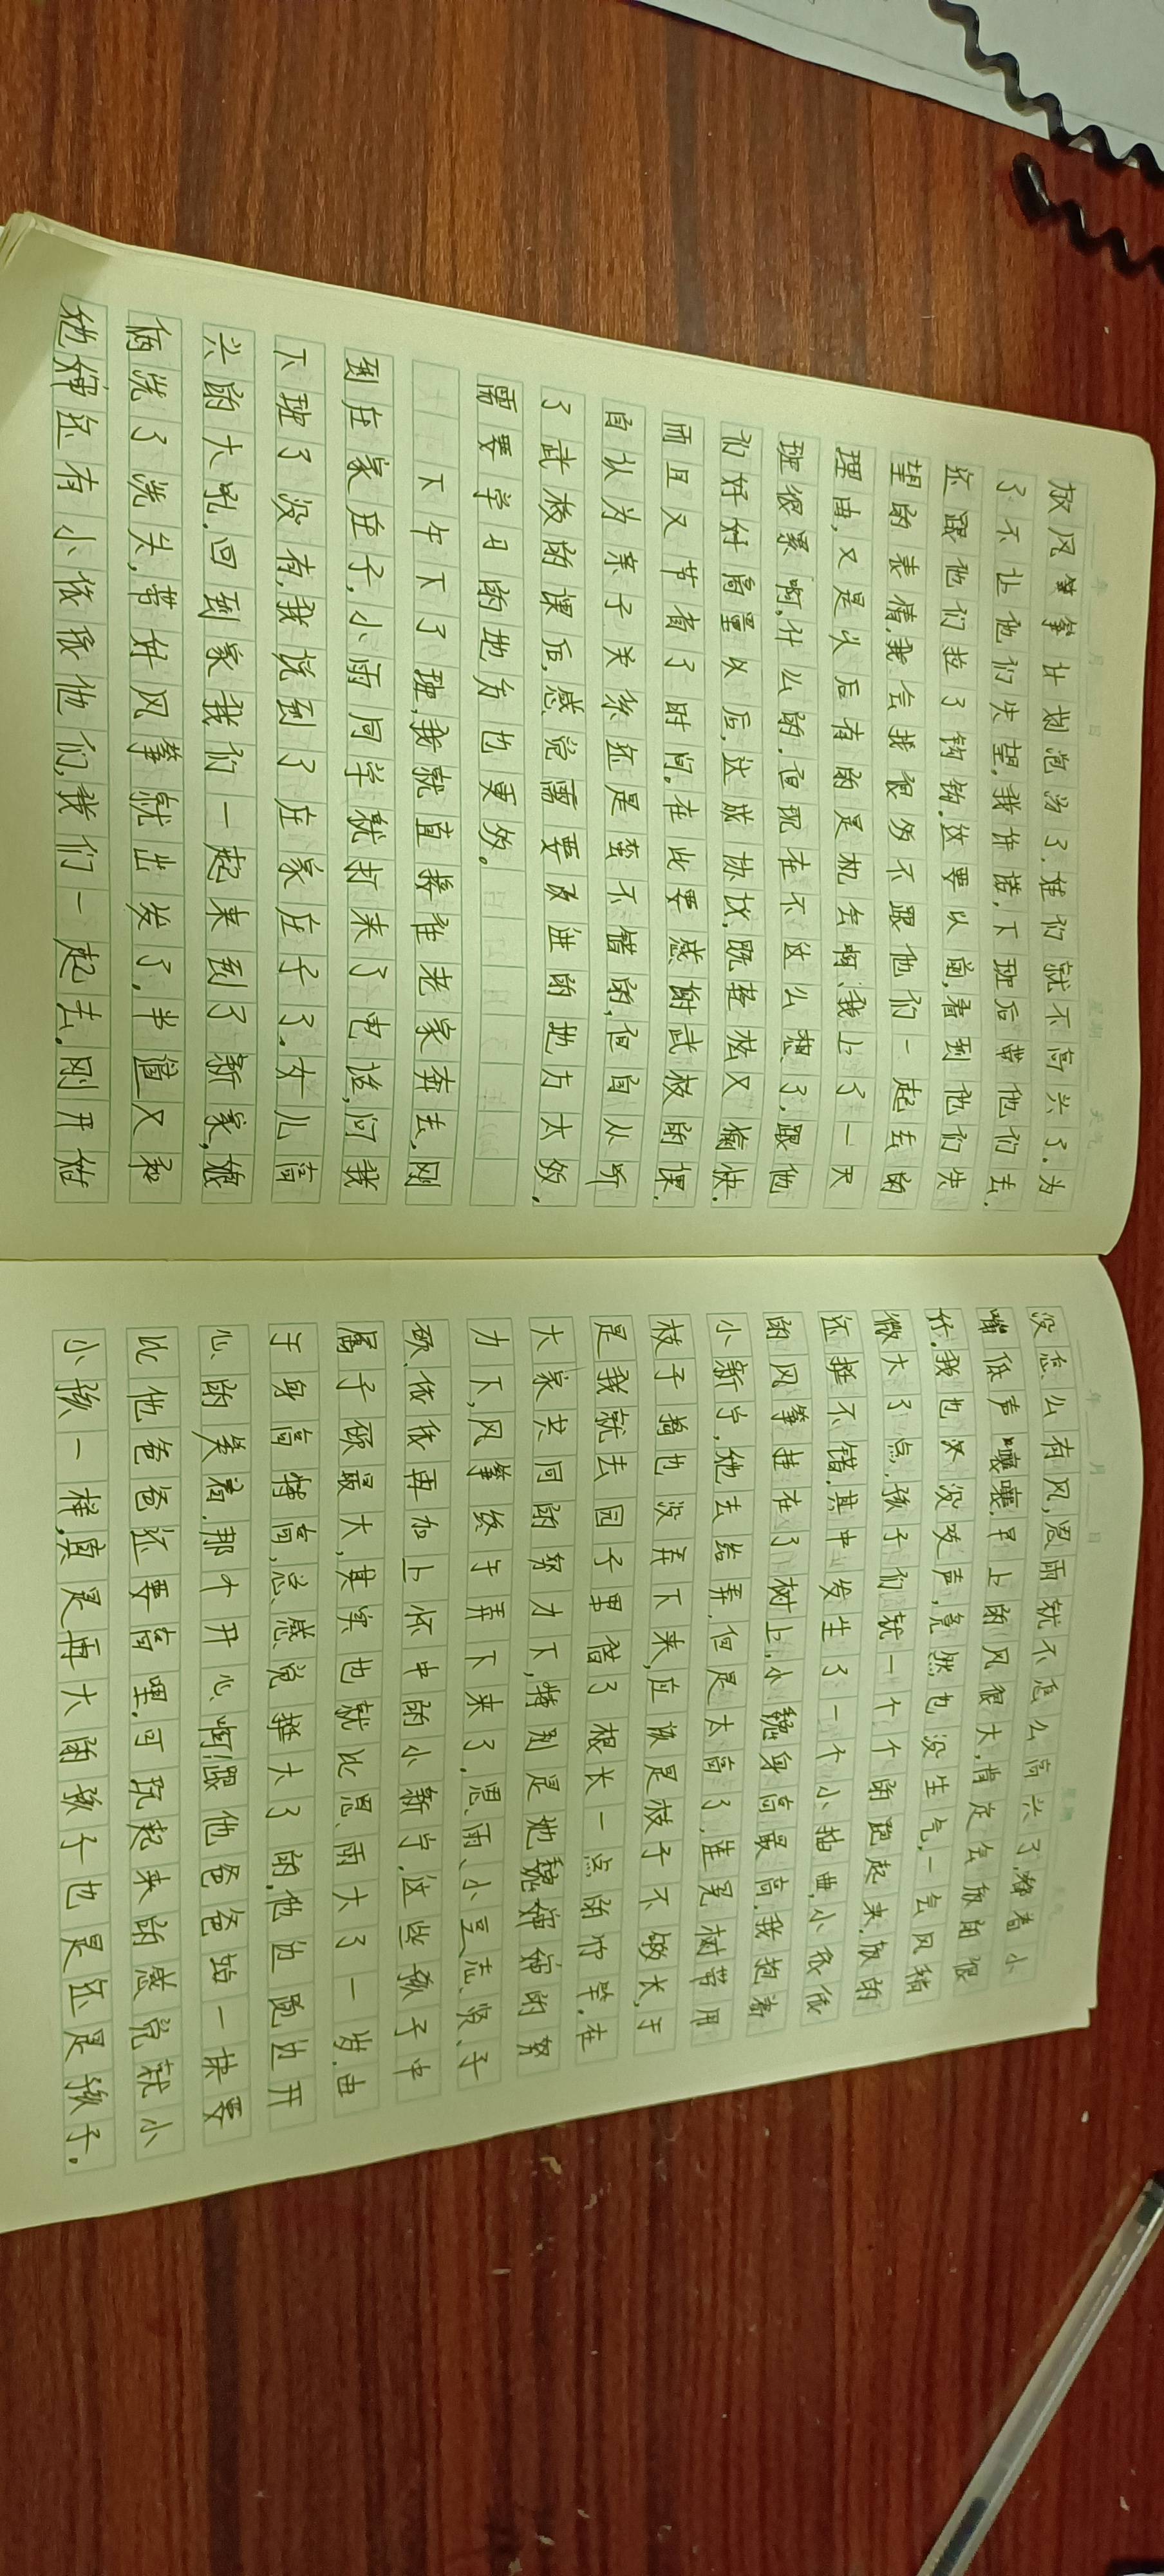 放风筝筝计划泡汤了.娃们就不高兴了.为
了不让他们失望.我许诺,下班后带他们去.
还跟他们拉了钩钩.这要以前,看到他们失
望的表情,我会找很多不跟他们一起去的
理由,又是以后有的是机会啊、我上了一天
班很累啊,什么的.但现在不这么想了.跟他
们好好商量以后.达成协议,既轻松又愉快.
而且又节省了时间.在此要感谢武校的课.
自认为亲子关系还是蛮不错的,但自从听
了武校的课后,感觉需要改进的地方太多,
需要学习的地方也更多。
下午下了班,我就直接往老家奔去,刚
到庄家庄子,小雨同学就打来了电话,问我
下班了没有,我说到了庄家庄子了.女儿高
兴的大吼.回到家我们一起来到了新家,娘
俩洗了洗头,带好风筝就出发了.半道又和
她婶还有小依依他们,我们一起去.刚开始
没怎么有风,恩雨就不怎么高兴了.撅着小
嘴低声嚷嚷.早上的风很大,肯定会放的很
好.我也没发声,竟然也没生气.一会风稍
微大了点.孩子们就一个个的跑起来.放的
还挺不错.其中发生了一个小抽曲,小依依
的风筝挂在了树上.小魏身高最高.我抱着
小新宁,他去给弄.但是太高了.连晃树带用
枝子捣也没弄下来,应该是枝子不够长,于
是我就去园子里借了根长一点的竹竿.在
大家共同的努力下,特别是她魏婶婶的努
力下,风筝终于弄下来了.恩雨、小豆、志贤、子
硕、依依再加上怀中的小新宁.这些孩子中
属子硕最大,其实也就比恩雨大了一岁.由
于身高特高,总感觉挺大了的,他边跑边开
心的笑着.那个开心啊!跟他爸爸站一块要
比他爸爸还要高哩.可玩起来的感觉就小
小孩一样,真是再大的孩子也是还是孩子。